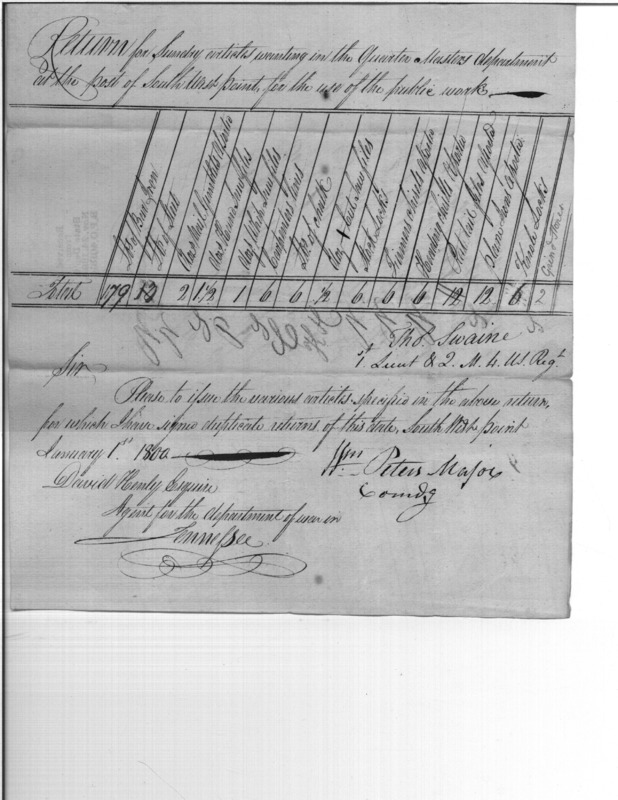 Return for Sundry articles wanting in the Quarter Masters department
at the post of South West point, for the use of the public work.
lbs of Barr Iron
lbs of Steel
Doz
Doz
Doz Whip Saw files
Carpenters
lbs of chalk
Doz Saw files
Stock Locks
Firmers Chisels
Chisels
Locks
Grind Stones
Total 179 12 2 1½ 1 6 6 ½ 6 6 6 12 12 6 2
Tho. Swaine
1st Lieut & Q. M. 4. US. Regt
Sir
Please to issue the various articles specified in the above return,
for which I have signed duplicate returns of this date, South West point
January 1st 1800
Wm Peters Major
Comdg
David Henly Esquire
Agent for the department of war in
Tennessee